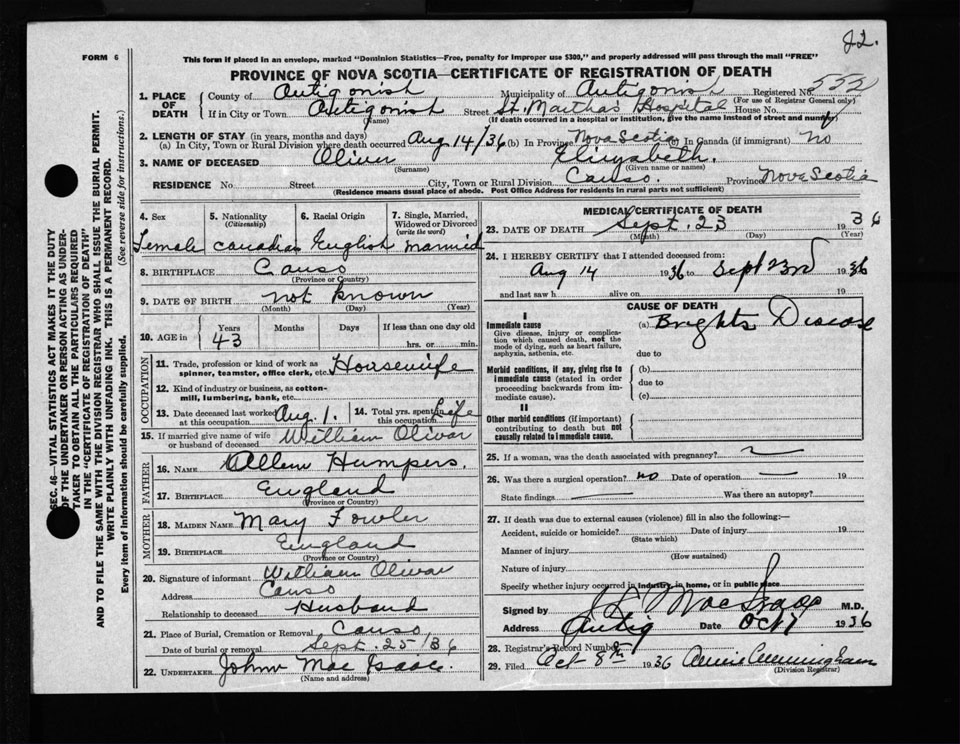 22.
FORM 6
This form if placed in an envelope, marked "Dominion Statistics—Free, penalty for improper use $300," and properly addressed will pass through the mail "FREE"
PROVINCE OF NOVA SCOTIA—CERTIFICATE OF REGISTRATION OF DEATH
1. PLACE OF DEATH
County of Antigonish Municipality of Antigonish Registered No. 552
(For use of Registrar General only)
If in City or Town Antigonish Street St. Martha's Hospital House No.
(Name) (If death occurred in a hospital or institution, give the name instead of street and number)
2. LENGTH OF STAY (in years, months and days)
(a) In City, Town or Rural Division where death occurred Aug 14/36 (b) In Province Nova Scotia (c) In Canada (if immigrant) no
3. NAME OF DECEASED Olivar Elizyabeth.
(Surname) (Given name or names)
RESIDENCE No. Street City, Town or Rural Division Canso. Province Nova Scotia
(Residence means usual place of abode. Post Office Address for residents in rural parts not sufficient)
4. Sex 5. Nationality (Citizenship) 6. Racial Origin 7. Single, Married, Widowed or Divorced (write the word)
Female Canadian English Married
8. BIRTHPLACE Canso
(Province or Country)
9. DATE OF BIRTH not known
(Month) (Day) (Year)
10. AGE in Years Months Days If less than one day old
43 hrs. or min.
OCCUPATION
11. Trade, profession or kind of work as spinner, teamster, office clerk, etc. Housewife
12. Kind of industry or business, as cotton-mill, lumbering, bank, etc.
13. Date deceased last worked at this occupation Aug 1. 14. Total yrs. spent in this occupation Life
15. If married give name of wife or husband of deceased William Olivar
FATHER
16. NAME Allen Humpers.
17. BIRTHPLACE England
(Province or Country)
MOTHER
18. MAIDEN NAME Mary Fowler
19. BIRTHPLACE England
(Province or Country)
20. Signature of informant William Olivar
Address Canso
Relationship to deceased Husband
21. Place of Burial, Cremation or Removal Canso,
Date of burial or removal Sept. 25/36
22. UNDERTAKER John Mac Isaac.
(Name and address)
MEDICAL CERTIFICATE OF DEATH
23. DATE OF DEATH Sept. 23 1936
(Month) (Day) (Year)
24. I HEREBY CERTIFY that I attended deceased from:
Aug 14 1936 to Sept 23rd 1936
and last saw h alive on 19
CAUSE OF DEATH
I
Immediate cause (a) Brights Disease
Give disease, injury or complication which caused death, not the mode of dying, such as heart failure, asphyxia, asthenia, etc.
due to
Morbid conditions, if any, giving rise to immediate cause (stated in order proceeding backwards from immediate cause).
(b)
due to
(c)
II
Other morbid conditions (if important) contributing to death but not causally related to immediate cause.
25. If a woman, was the death associated with pregnancy?
26. Was there a surgical operation? no Date of operation 19
State findings Was there an autopsy?
27. If death was due to external causes (violence) fill in also the following:—
Accident, suicide or homicide? Date of injury 19
(State which)
Manner of injury
(How sustained)
Nature of injury
Specify whether injury occurred in industry, in home, or in public place
Signed by MacIsaac M.D.
Address Antig Date Oct 7 1936
28. Registrar's Record Number
29. Filed Oct 8th 1936 Annie Cunningham
(Division Registrar)
SEC. 46—VITAL STATISTICS ACT MAKES IT THE DUTY
OF THE UNDERTAKER OR PERSON ACTING AS UNDER-
TAKER TO OBTAIN ALL THE PARTICULARS REQUIRED
IN THE "CERTIFICATE OF REGISTRATION OF DEATH"
AND TO FILE THE SAME WITH THE DIVISION REGISTRAR WHO SHALL ISSUE THE BURIAL PERMIT.
WRITE PLAINLY WITH UNFADING INK. THIS IS A PERMANENT RECORD.
Every item of information should be carefully supplied. (See reverse side for instructions.)